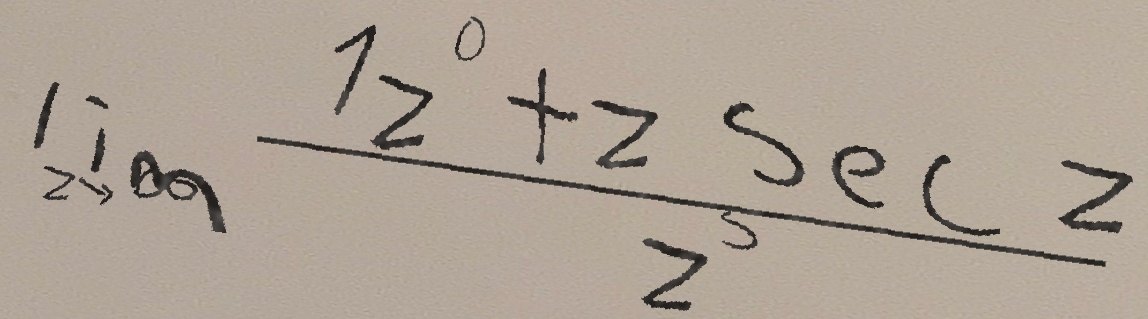 lim_{z→0} \frac{1z^0 + z sec z}{z^5}